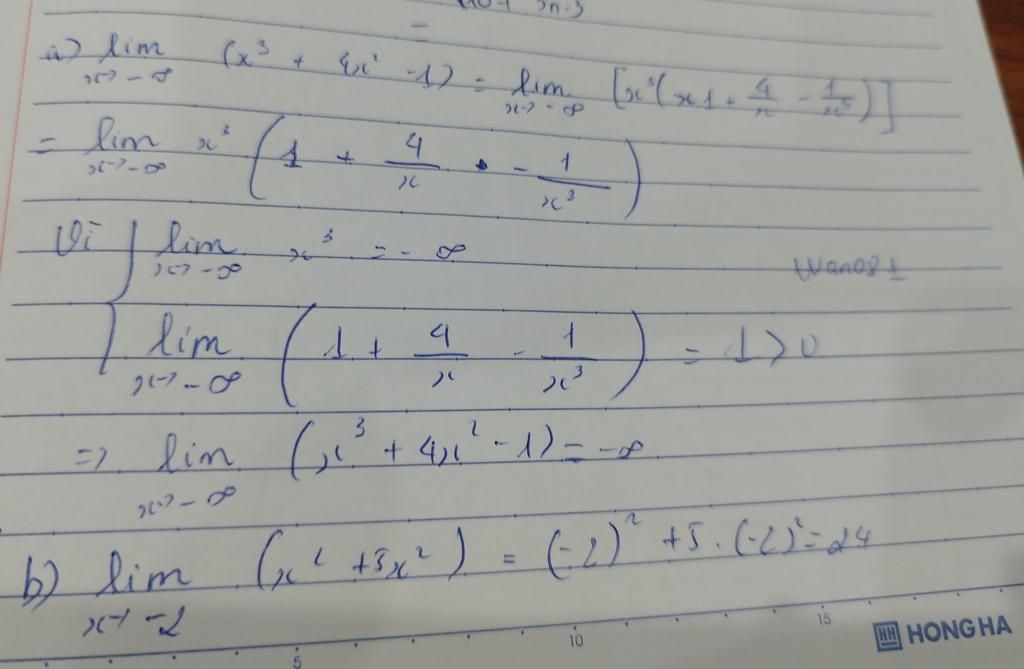 a) lim x→-∞ (x³ + 4x² - 1) = lim x→-∞ [x³(x1 + 4/x - 1/x³)]
= lim x→-∞ x³ (1 + 4/x - 1/x³)
Vì { lim x→-∞ x³ = -∞
Wan081
lim x→-∞ (1 + 4/x - 1/x³) = 1 > 0
=> lim x→-∞ (x³ + 4x² - 1) = -∞
b) lim x→-2 (x² + 5x²) = (-2)² + 5.(-2)² = 24
5 10 15
HH HONG HA